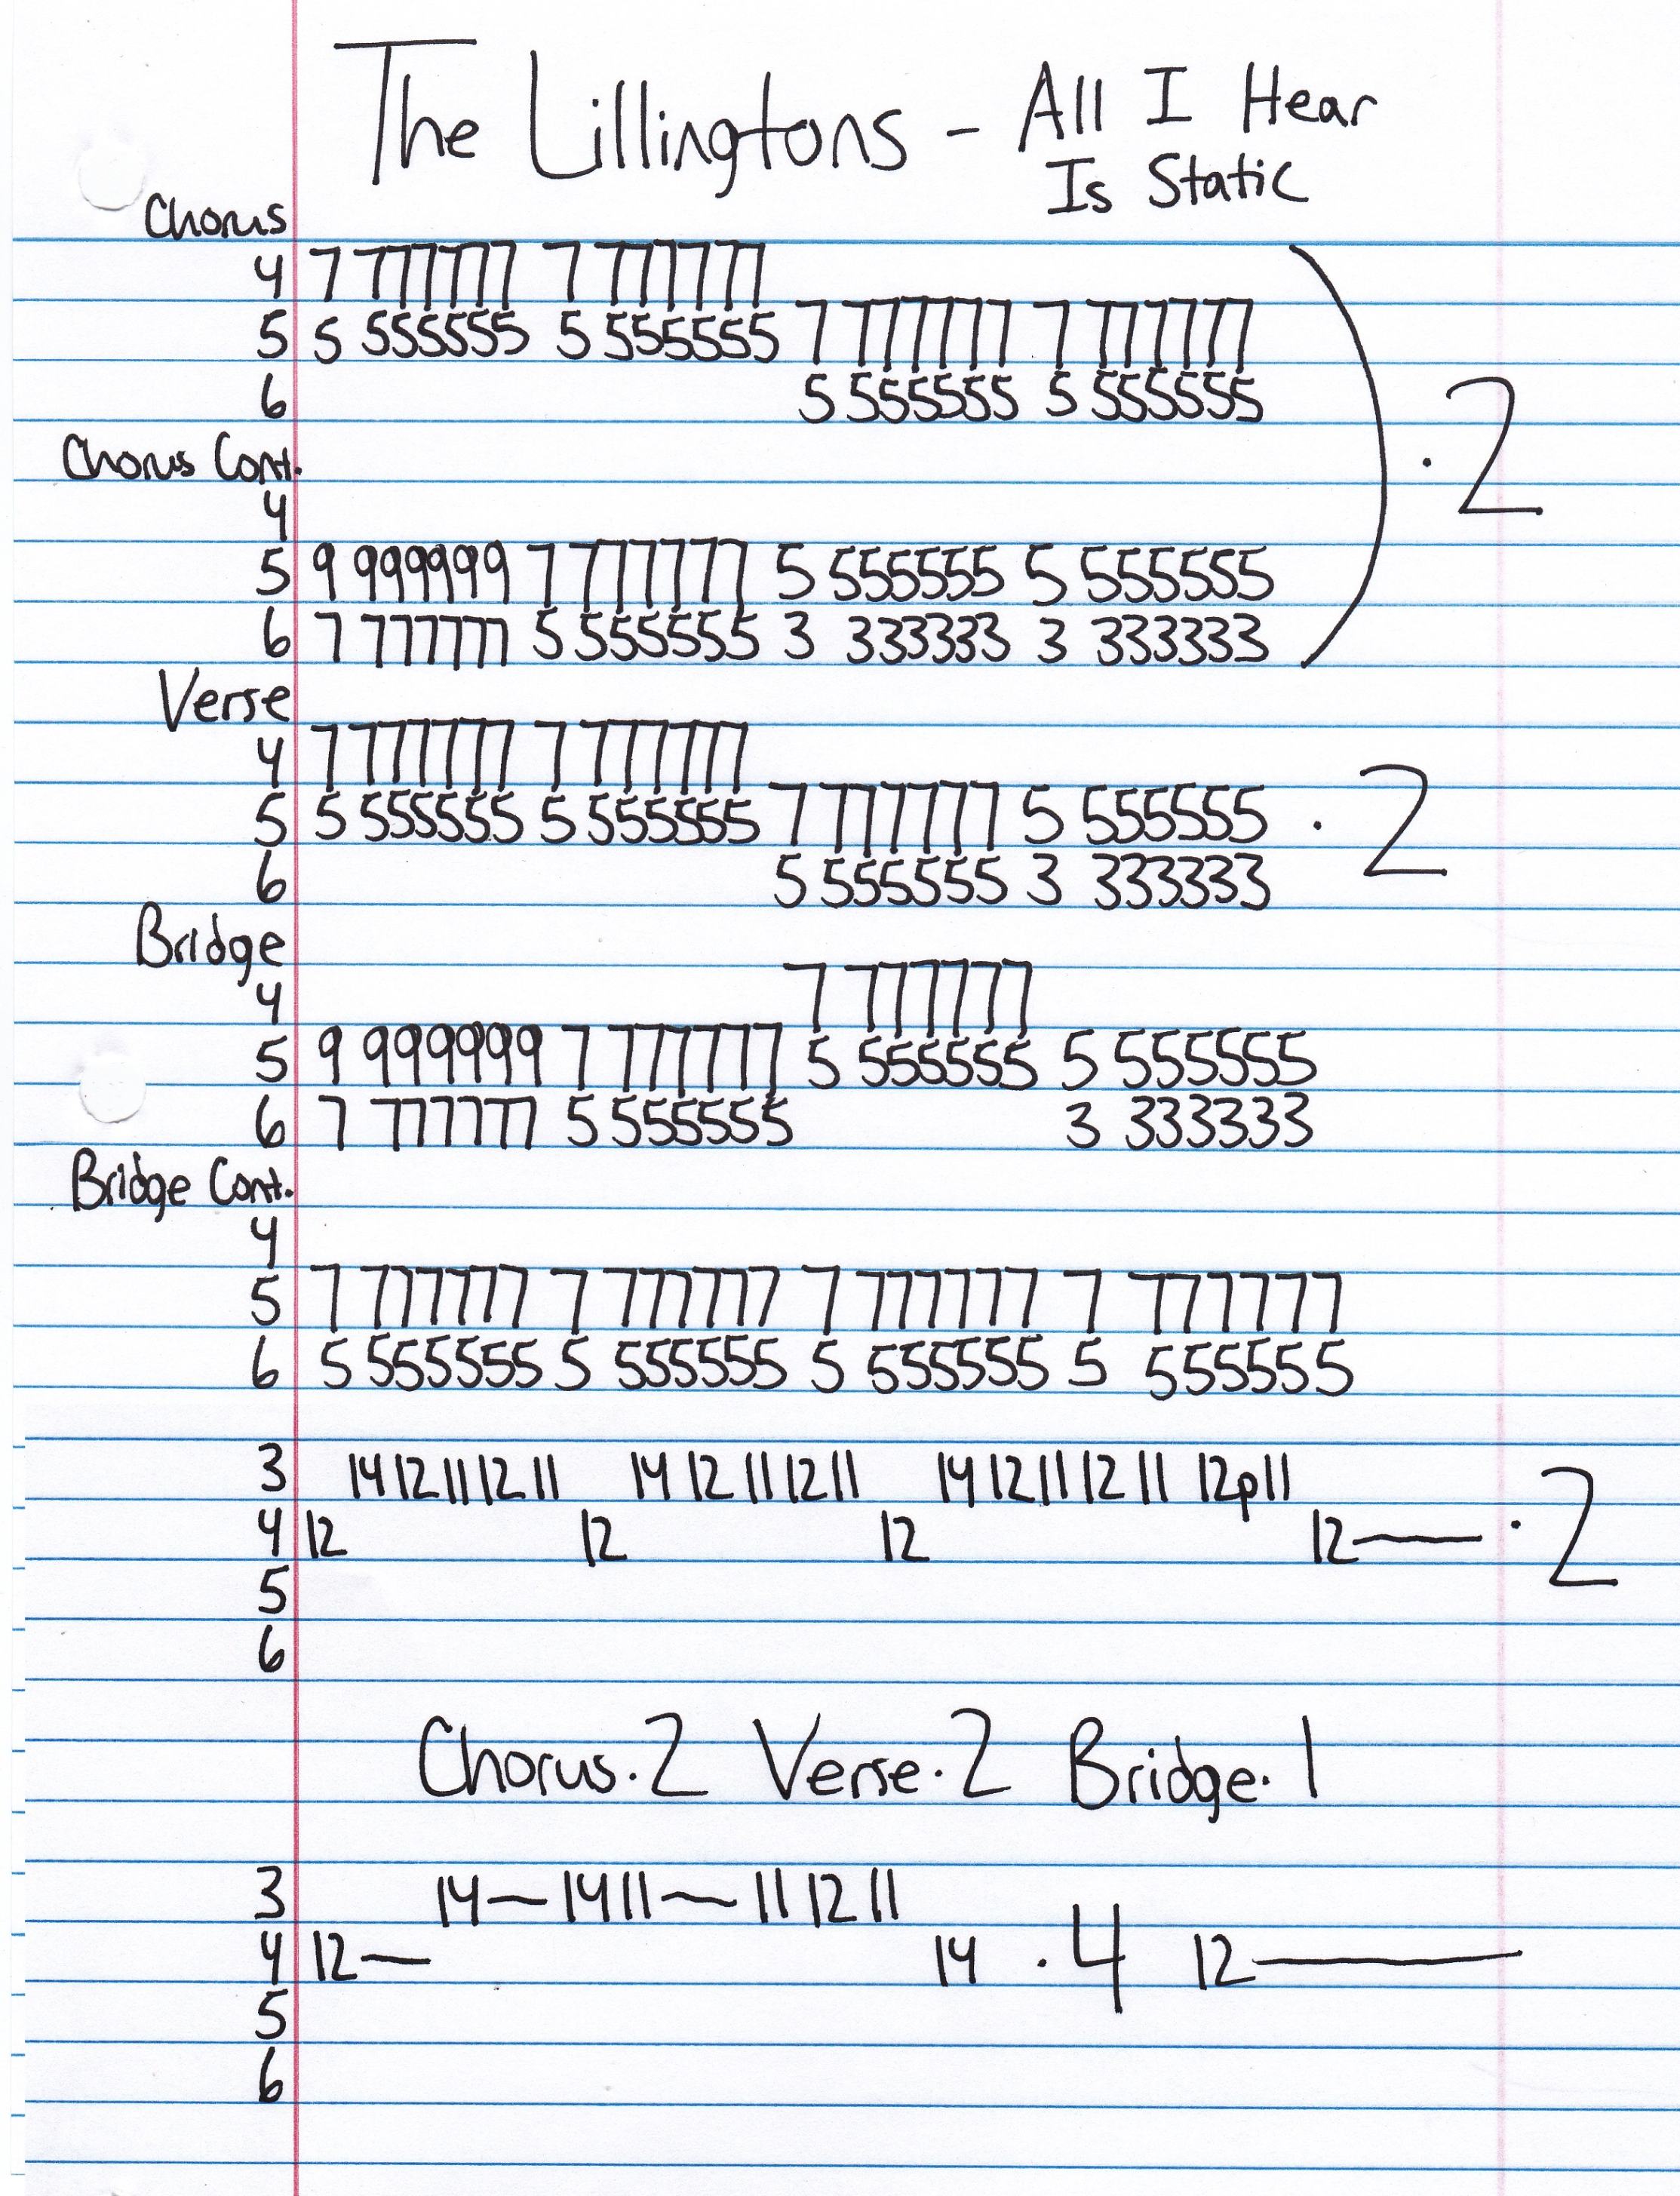 The Lillingtons - All I Hear
Is Static
Chorus
4 7 777777 7 777777
5 5 555555 5 555555 7 777777 7 777777
6 5 555555 5 555555
Chorus Cont.
· 2
4
5 9 999999 7 777777 5 555555 5 555555
6 7 777777 5 555555 3 333333 3 333333
Verse
4 7 777777 7 777777
5 5 555555 5 555555 7 777777 5 555555 · 2
6 5 555555 3 333333
Bridge
4 7 777777
5 9 999999 7 777777 5 555555 5 555555
6 7 777777 5 555555 3 333333
Bridge Cont.
4
5 7 777777 7 777777 7 777777 7 777777
6 5 555555 5 555555 5 555555 5 555555
3 14 12 11 12 11 14 12 11 12 11 14 12 11 12 11 12p11
4 12 12 12 12— · 2
5
6
Chorus·2 Verse·2 Bridge·1
3 14—14 11—11 12 11
4 12— 14 · 4 12—
5
6